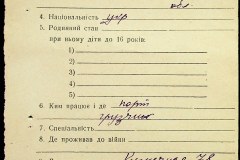 обл.
4. Національність укр
5. Родинний стан
при ньому діти до 16 років:
1)
2)
3)
4)
5)
6. Ким працює і де порт
грузчик
7. Спеціальність
8. Де проживав до війни
8.